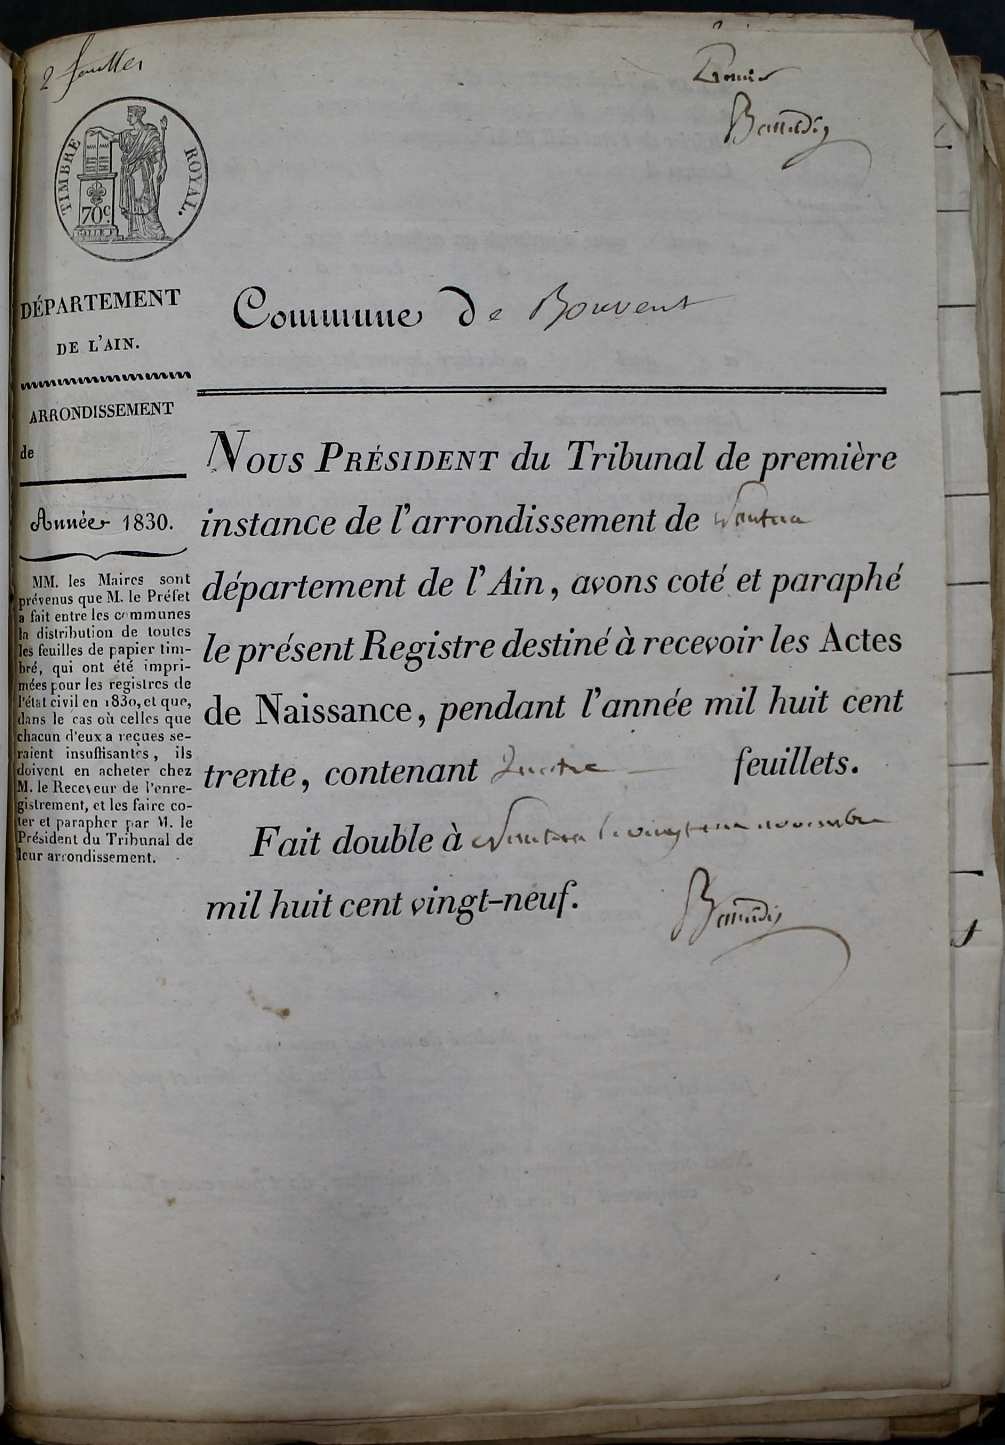 2 feuilles
Premier
TIMBRE ROYAL.
70c.
DÉPARTEMENT
DE L'AIN.
ARRONDISSEMENT
de
Année 1830.
MM. les Maires sont
prévenus que M. le Préfet
a fait entre les communes
la distribution de toutes
les feuilles de papier tim-
bré, qui ont été impri-
mées pour les registres de
l'état civil en 1830, et que,
dans le cas où celles que
chacun d'eux a reçues se-
raient insuffisantes, ils
doivent en acheter chez
M. le Receveur de l'enre-
gistrement, et les faire co-
ter et parapher par M. le
Président du Tribunal de
leur arrondissement.
Commune De Bouvent
NOUS PRÉSIDENT du Tribunal de première
instance de l'arrondissement de Nantua
département de l'Ain, avons coté et paraphé
le présent Registre destiné à recevoir les Actes
de Naissance, pendant l'année mil huit cent
trente, contenant quatre feuillets.
Fait double à Nantua le vingt novembre
mil huit cent vingt-neuf.